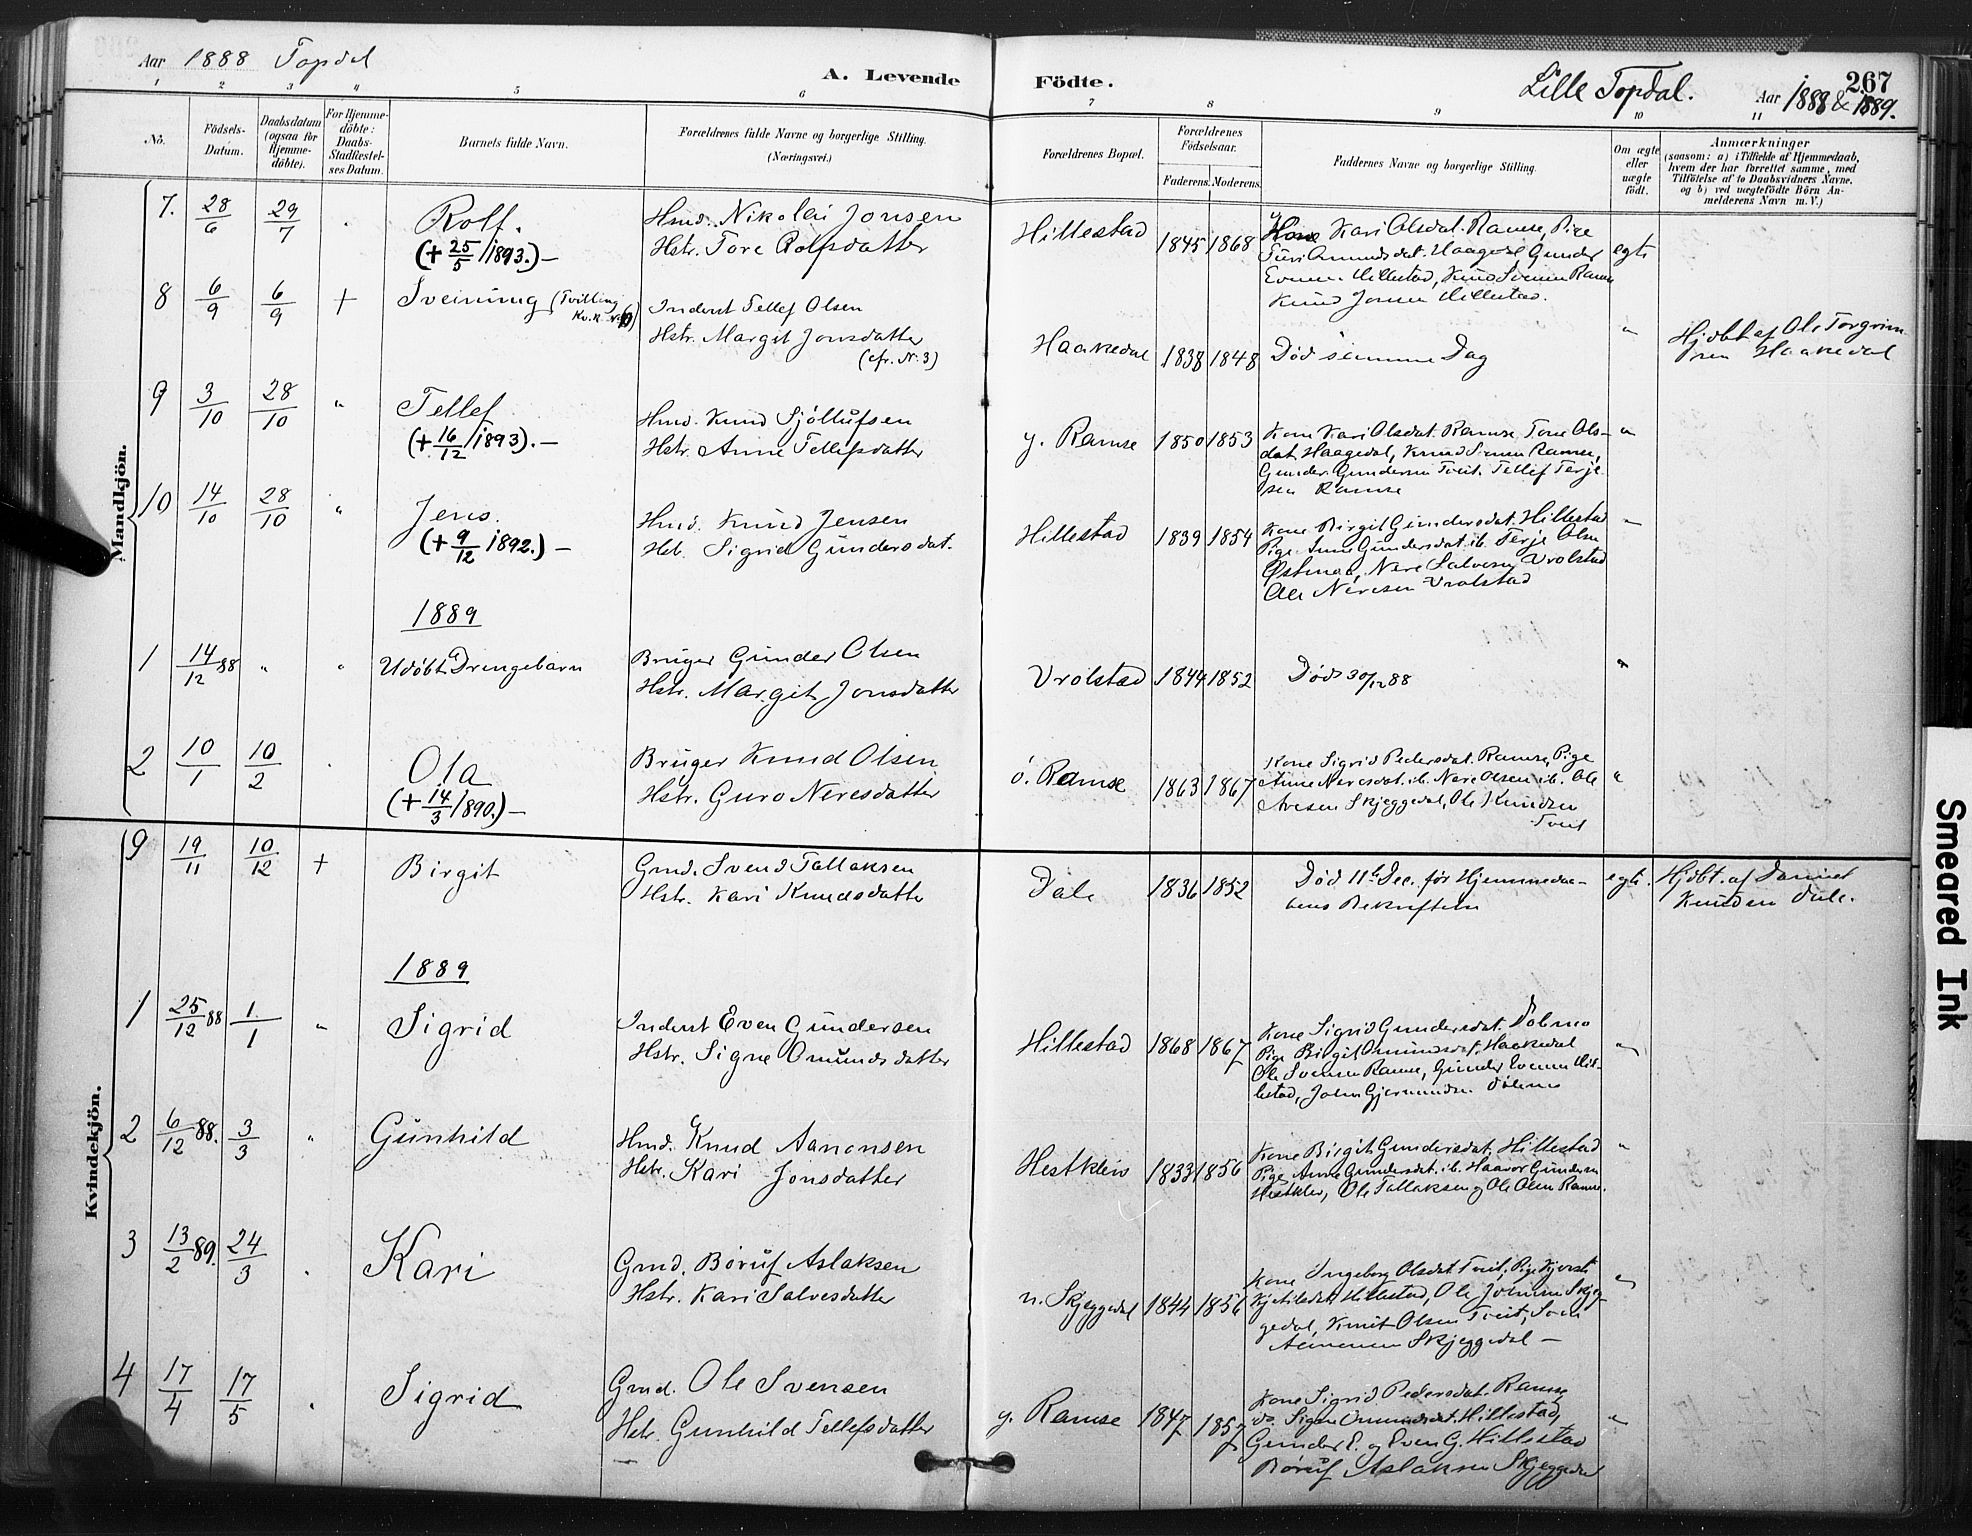 Aar 1888 Topdal
A. Levende Fødte.
Lille Topdal.
267
Aar 1888 & 1889.
1 2 3 4 5 6 7 8 9 10 11
No.
Födsels-Datum.
Daabsdatum (ogsaa for Hjemme-döbte).
For Hjemme-döbte: Daabs-Stadfæstel-ses Datum.
Barnets fulde Navn.
Forældrenes fulde Navne og borgerlige Stilling. (Næringsvei.)
Forældrenes Bopæl.
Forældrenes Födselsaar.
Faderens. Moderens.
Faddernes Navne og borgerlige Stilling.
Om ægte eller uægte födt.
Anmærkninger
(saasom: a) i Tilfælde af Hjemmedaab, hvem der har forrettet samme, med Tilföielse af to Daabsvidners Navne, og b) ved uægtefödte Börn An-melderens Navn m. V.)
Mandkjön.
7. 28/6 29/7 Rolf. (+ 25/5 1893.)—
Hmd. Nikolai Jonsen
Hstr. Tore Rolfsdatter
Hillestad 1845 1868
Kone Kari Olsdat. Ramse, Pige
Omundsdat. Haagedal Gunder
Evensen Hillestad, Knud Svensen Ramse
Knud Jonsen Hillestad.
egte
8 6/9 6/9 + Sveinung (Tvilling
Inderst Tellef Olsen
Hstr. Margit Jonsdatter
(cfr. N. 3)
Haakedal 1838 1848 Död samme Dag "
Hjdbt af Ole Torgrim
sen Haakedal
9 3/10 28/10 " Tellef (+ 16/12 1893).—
Hmd. Knud Sjöllufsen
Hstr. Anne Tellefsdatter
y. Ramse 1850 1853
Kone Kari Olsdat. Ramse, Tone Ols-
dat. Haagedal, Knud Svensen Ramse,
Gunder Gundersen Tveit. Tellef Terje
sen Ramse
"
10 14/10 28/10 " Jens. (+ 9/12 1892.)—
Hmd. Knud Jensen
Hst. Sigrid Gundersdat.
Hillestad 1839 1854
Kone Birgit Gundersdat. Hillestad
Pige Anne Gundersdat. ib. Terje Olsen
Østmoe, Nere Salvesen Vrolstad
Ole Neresen Vrolstad
"
1889
1 14/12 88 " " Udöbt Drengebarn
Bruger Gunder Olsen
Hstr. Margit Jonsdatter
Vrolstad 1844 1852 Död 30/12 88 "
2 10/1 10/2 Ola (+ 14/3 1890.)—
Bruger Knud Olsen
Hstr. Guro Neresdatter
ö. Ramse 1863 1867
Kone Sigrid Pedersdat. Ramse, Pige
Anne Neresdat. ib. Nere Olsen ib. Ole
Avesen Skjeggedal, Ole Knudsen
Tveit
"
Kvindekjön.
9 19/11 10/12 + Birgit
Gmd. Svend Tallaksen
Hstr. Kari Knudsdatter
Dale 1836 1852
Död 11te Dec. för Hjemmedaa-
bens Bekræftelse
egte.
Hjdbt. af Daniel
Knudsen Dale.
1889
1 25/12 88 1/1 " Sigrid
Inderst Even Gundersen
Hstr. Signe Omundsdatter
Hillestad 1868 1867
Kone Sigrid Gundersdat. Dölemo
Pige Birgit Omundsdat. Haakedal
Ole Svensen Ramse, Gunder Evensen Hil-
lestad, John Gjermundsen Dölemo
"
2 6/12 88. 3/3 " Gunhild
Hmd. Knud Aanonsen
Hstr. Kari Jonsdatter
Hestklev 1833 1856
Kone Birgit Gundersdat. Hillestad
Pige Anne Gundersdat. ib. Haavor Gundersen
Hestklev, Ole Tallaksen og Ole Olsen Ramse.
"
3 13/2 89. 24/3 Kari
Gmd. Boruf Aslaksen
Hstr. Kari Salvesdatter
n. Skjeggedal 1844 1856
Kone Ingeborg Olsdat. Tveit, Pige Kjersti
Kjetilsdat. Hillestad, Ole Johnsen Skjeg-
gedal, Knut Olsen Tveit,
Skjeggedal —
"
4 17/4 17/5 Sigrid
Gmd. Ole Svensen
Hstr. Gunhild Tellefsdatter
y. Ramse 1847 1857
Kone Sigrid Pedersdat. Ramse
do. Signe Omundsdat. Hillestad,
Gunder E. og Even G. Hillestad
Boruf Aslaksen Skjeggedal
"
Smeared Ink